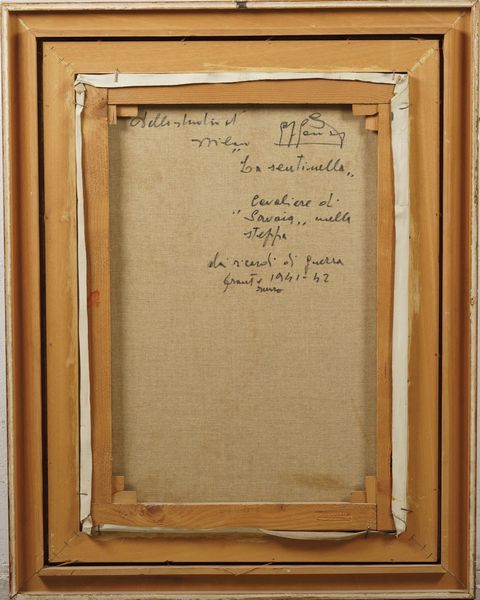 dello studio di
Milano
"La sentinella"
Cavaliere di
"Savoia" nella
steppa
dai ricordi di guerra
fronte 1941-42
russo